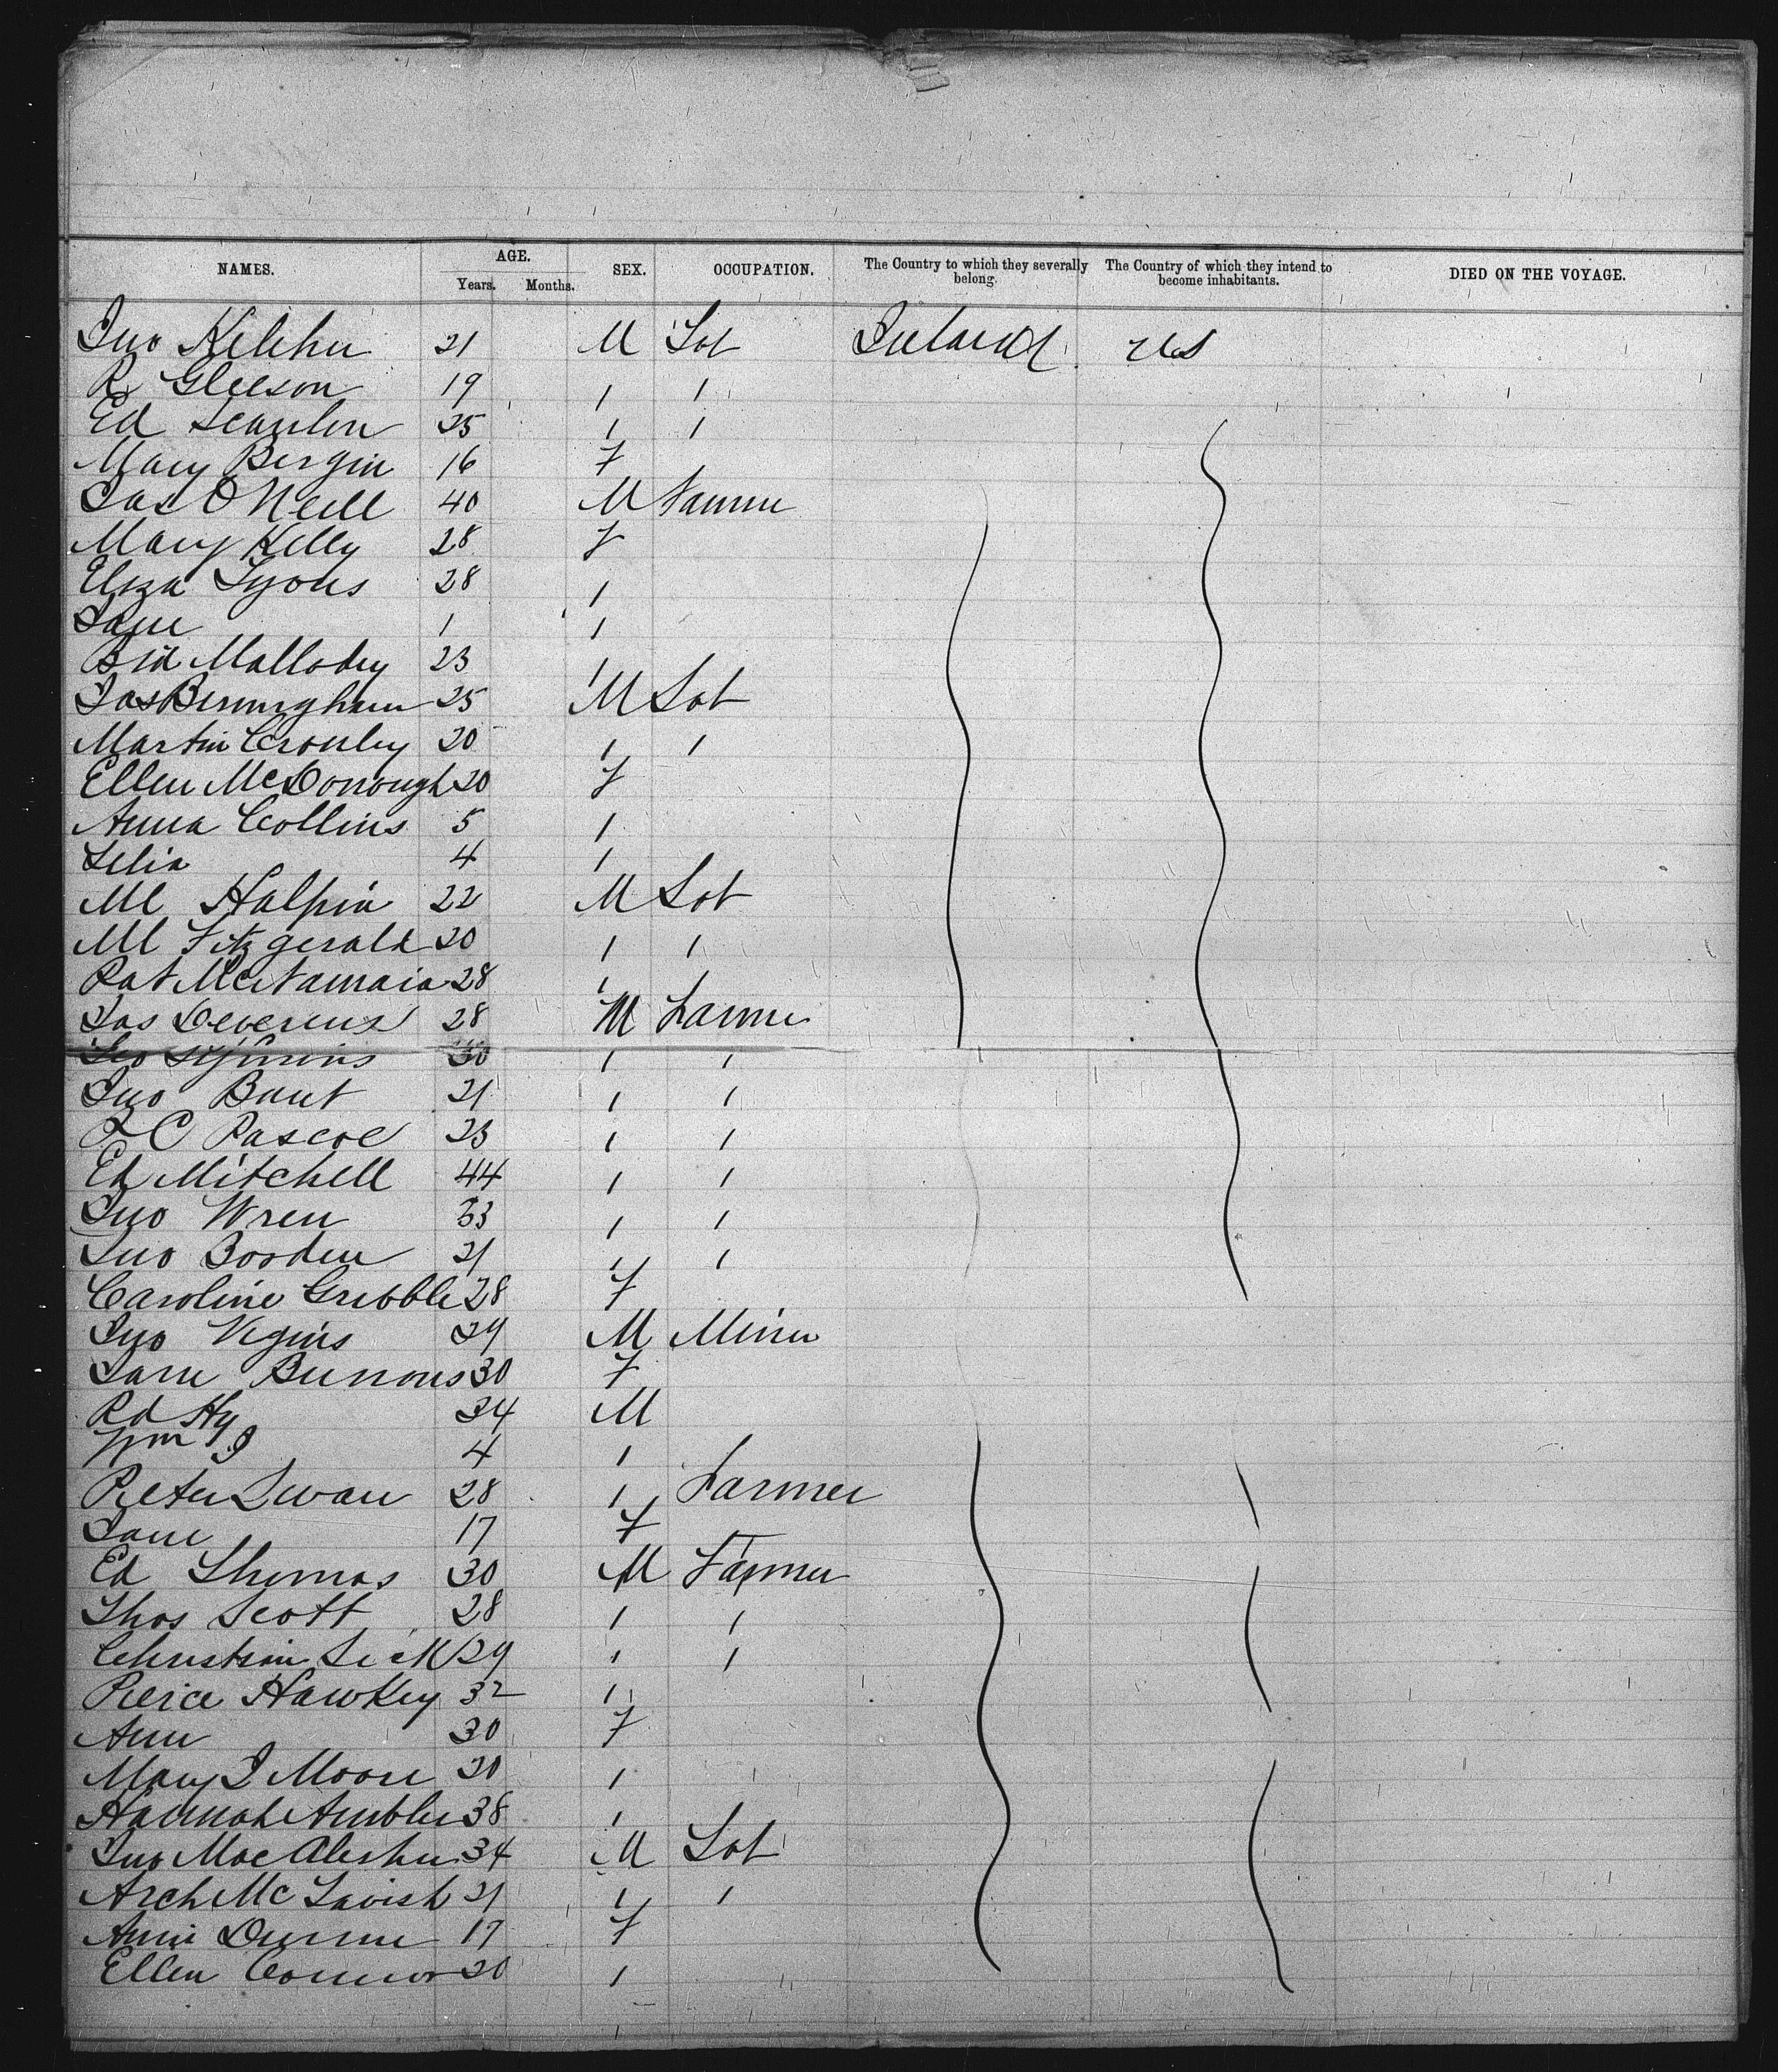 NAMES. AGE. SEX. OCCUPATION. The Country to which they severally belong. The Country of which they intend to become inhabitants. DIED ON THE VOYAGE.
Years. Months.
Jno Kelcher 21 M Lab Ireland US
R Gleeson 19 1 1
Ed Scanlon 25 1 1
Mary Bergin 16 F
Jas O Neill 40 M Farmer
Mary Kelly 28 F
Eliza Lyons 28 1
Jane 1 1
Brid 23 1
Jas Bermingham 25 M Lab
Martin Cronley 20 1 1
Ellen McDonough 20 F
Anna Collins 5 1
Celia 4 1
Ml Halpin 22 M Lab
Ml Fitzgerald 20 1 1
Pat McNamara 28 1
Jas Devereux 28 M Farmer
Geo 30 1 1
Jno Bant 21 1 1
Pascoe 23 1 1
Ed Mitchell 44 1 1
Jno Wren 33 1 1
Jno Borden 21 1 1
Caroline Gribble 28 F
Jno 29 M Miner
Jane 30 F
Rd Hy 34 M
Wm J 4 1
Peter Swan 28 1 Farmer
Jane 17 F
Ed Thomas 30 M Farmer
Thos Scott 28 1 1
Christian 29 1 1
Peirce Hawkey 32 1
Ann 30 F
Mary J Moore 20 1
Hannah Ambler 38 1
Jno Mac 34 M Lab
Arch McTavish 21 1 1
Annie 17 F
Ellen Connor 20 1